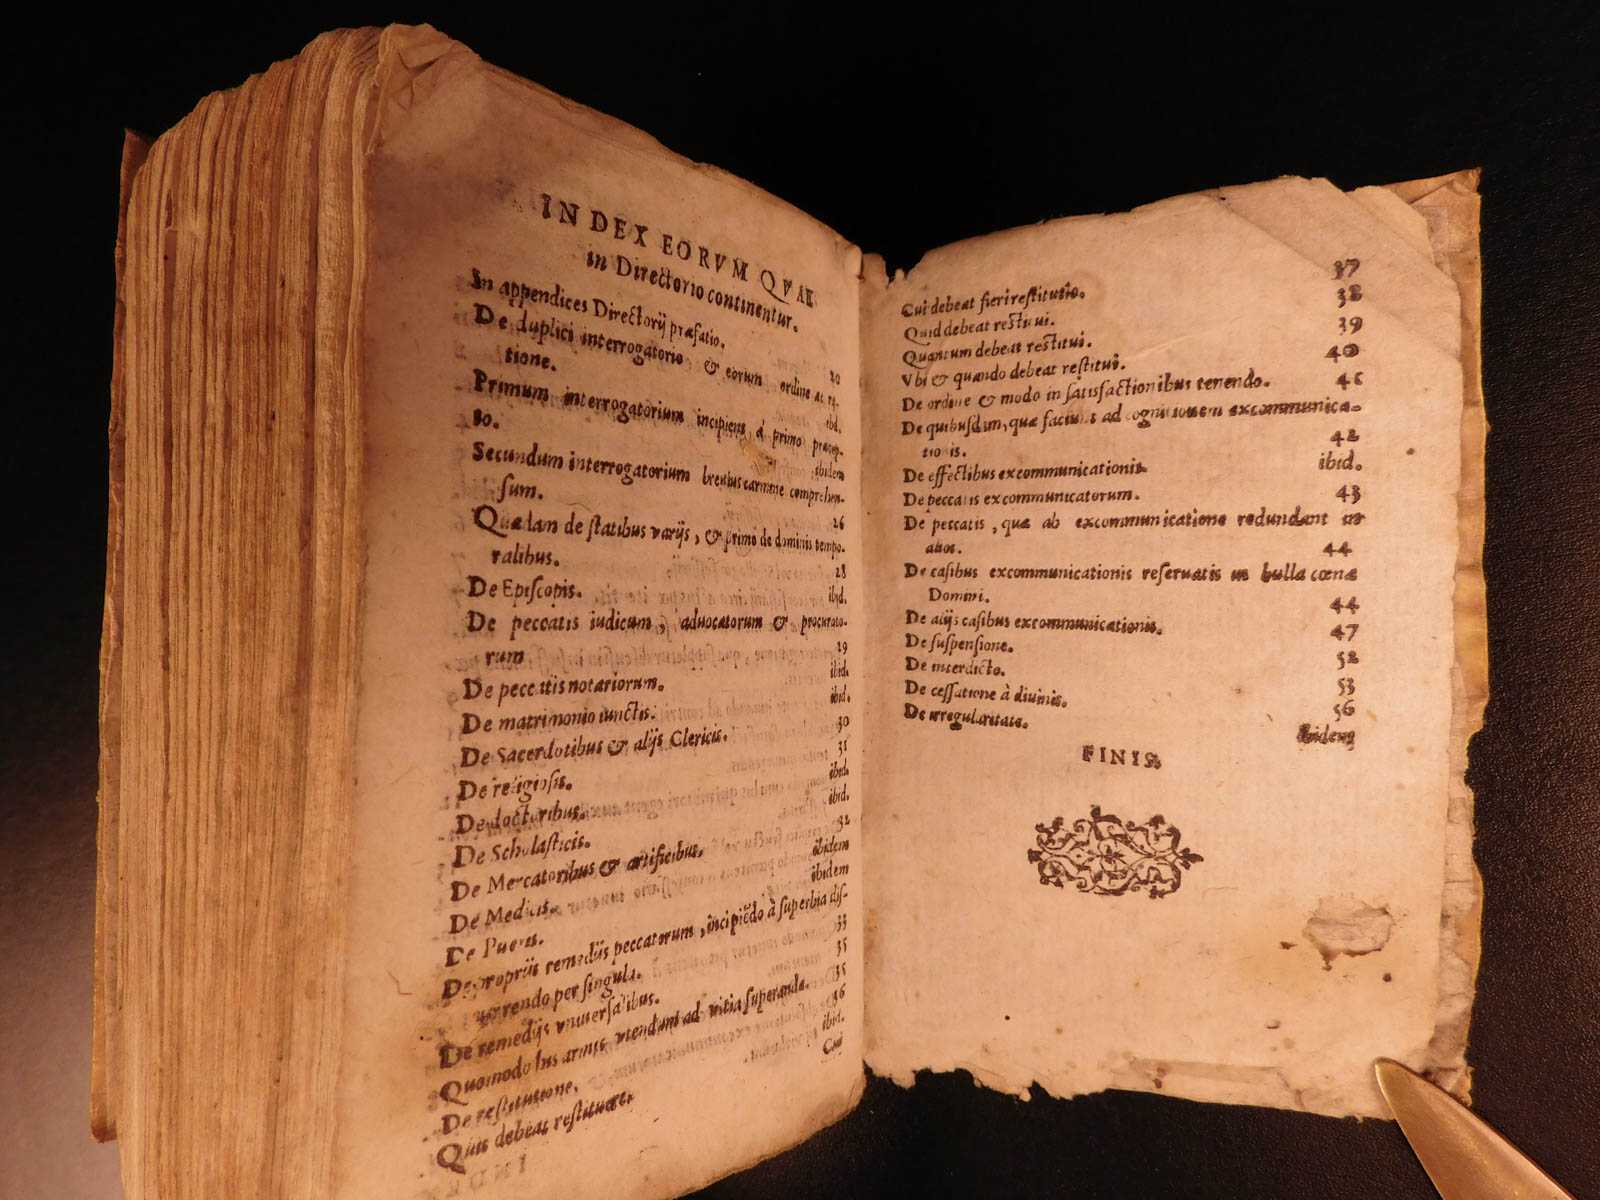 INDEX EORVM QVAE
in Directorio continentur.
In appendices Directorij præfatio. 20
De duplici interrogatorio & eorum ordine ac ra-
tione. ibid.
Primum interrogatorium incipiens à primo præcep-
to. ibidem
Secundum interrogatorium breuius carmine comprehen-
sum. 26
Quædam de statibus varijs, & primò de dominis tempo-
ralibus. 28
De Episcopis. ibid.
De peccatis iudicum, aduocatorum & procurato-
rum 29
De peccatis notariorum. ibid.
De matrimonio iunctis. ibid.
De Sacerdotibus & alijs Clericis. 30
De religiosis. 31
De doctoribus. ibid.
De Scholasticis. ibid.
De Mercatoribus & artificibus. 32
De Medicis. ibidem
De Pueris. ibidem
De proprijs remedijs peccatorum, incipiẽdo à superbia dis-
currendo per singula. 33
De remedijs vniuersalibus. 35
Quomodo his armis vtendum ad vitia superanda. 35
De restitutione. 36
Quis debeat restituere. ibid.
Cui
Cui debeat fieri restitutio. 37
Quid debeat restitui. 38
Quantum debeat restitui. 39
Vbi & quando debeat restitui. 40
De ordine & modo in satisfactionibus tenendo. 41
De quibusdam, quæ faciunt ad cognitionem excommunica-
tionis. 42
De effectibus excommunicationis. ibid.
De peccatis excommunicatorum. 43
De peccatis, quæ ab excommunicatione redundant in
alios. 44
De casibus excommunicationis reseruatis in bulla cœnæ
Domini. 44
De alijs casibus excommunicationis. 47
De suspensione. 52
De interdicto. 53
De cessatione à diuinis. 56
De irregularitate. ibidem
FINIS.